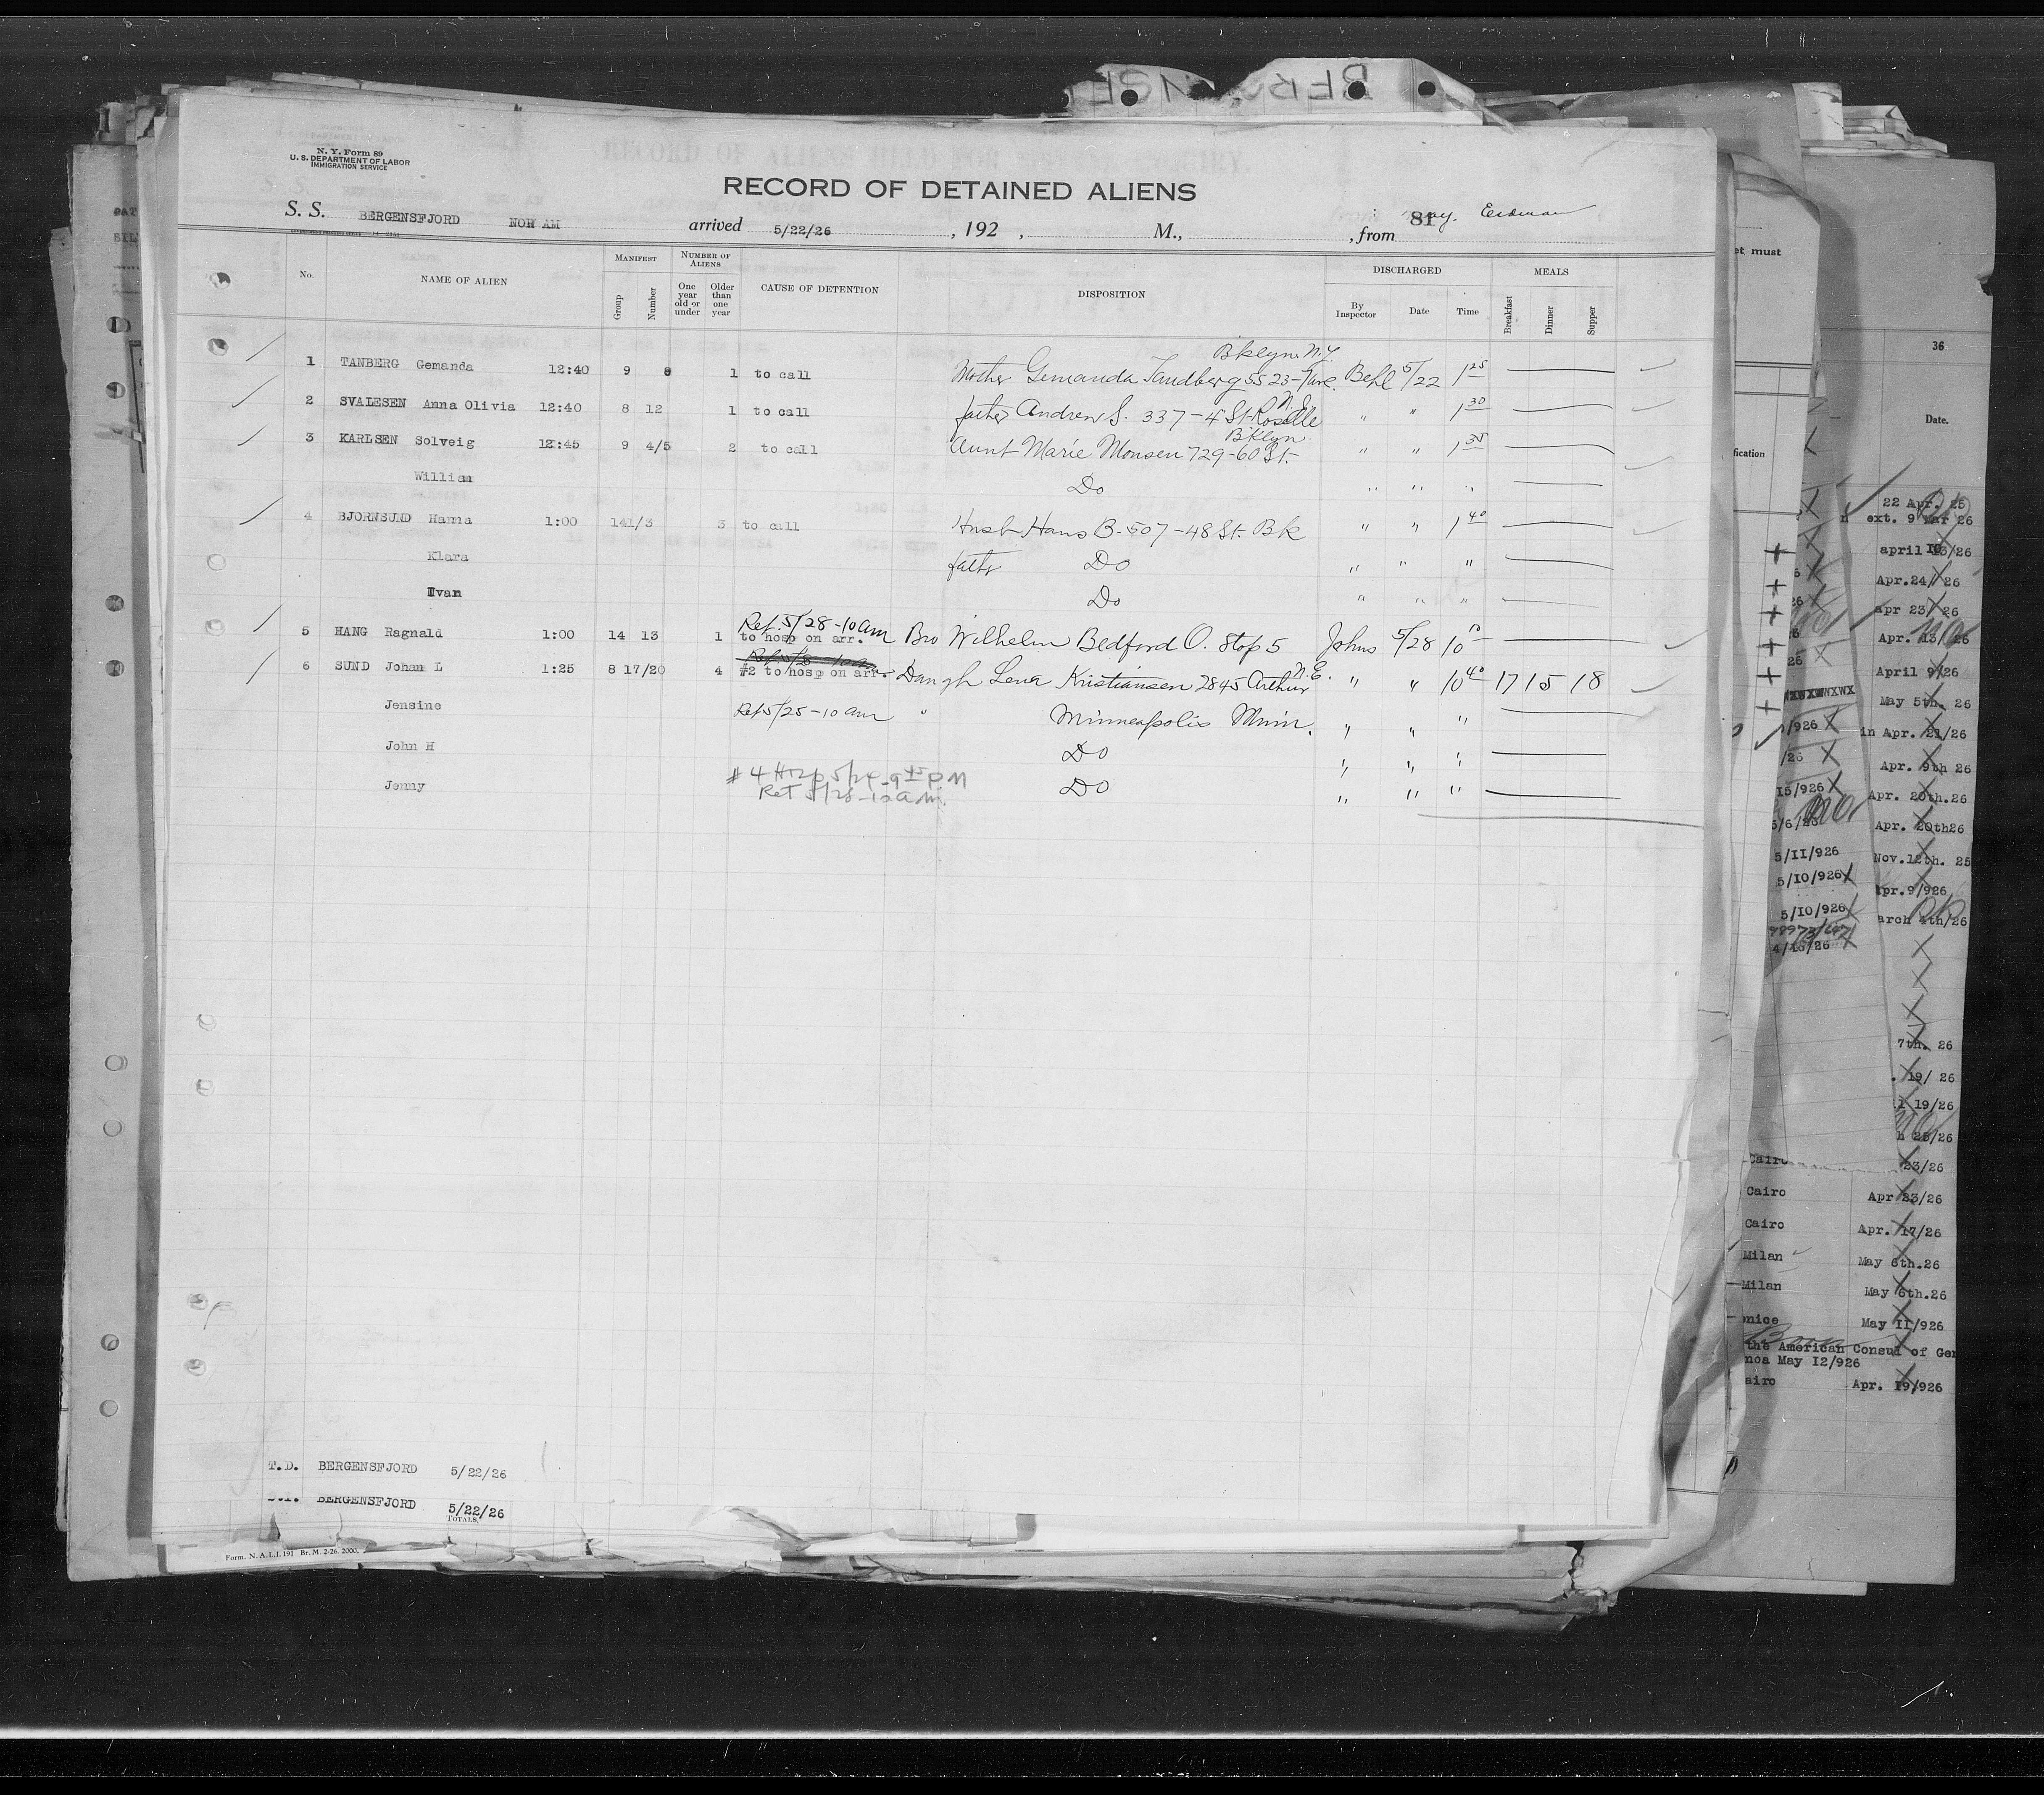 N. Y. Form 89
U. S. DEPARTMENT OF LABOR
IMMIGRATION SERVICE
RECORD OF DETAINED ALIENS
S. S. BERGENSFJORD NOR AM arrived 5/22/26 , 192 , M., , from 81
No. NAME OF ALIEN MANIFEST Group Number NUMBER OF ALIENS One year old or under Older than one year CAUSE OF DETENTION DISPOSITION DISCHARGED By Inspector Date Time MEALS Breakfast Dinner Supper
Bklyn. N.Y.
1 TANBERG Gemanda 12:40 9 8 1 to call Mother Gemanda Tandberg 5523-7 ave. Behl 5/22 1 25
N.J.
2 SVALESEN Anna Olivia 12:40 8 12 1 to call father Andrew S. 337-4 St. Roselle " " 1 30
Bklyn.
3 KARLSEN Solveig 12:45 9 4/5 2 to call Aunt Marie Monsen 729-60 St. " " 1 35
William Do " " "
4 BJORNSUND Hanna 1:00 14 1/3 3 to call Husb Hans B. 507-48 St. Bk " " 1 40
Klara fath Do " " "
Ivan Do " " "
Ret. 5/28-10 am
5 HANG Ragnald 1:00 14 13 1 to hosp on arr. Bro Wilhelm Bedford O. Stop 5 Johns 5/28 10 10
Ret 5/28 10 am
N.E.
6 SUND Johan L 1:25 8 17/20 4 #2 to hosp on arr. Daugh Lena Kristiansen 2845 Arthur " " 10 40 17 15 18
Jensine Ret 5/25-10 am " Minneapolis Minn. " " "
John H Do " " "
#4 Hosp 5/24-9 15 PM
Jenny Ret 5/28-10 a.m. Do " " "
T.D. BERGENSFJORD 5/22/26
BERGENSFJORD 5/22/26
TOTALS,
Form. N.A.L.I. 191 Br. M. 2-26. 2000.
et must
fication
36
Date.
22 Apr. 25
ext. 9 Mar 26
april 13/26
Apr.24/ 26
apr 23/ 26
Apr. 13/ 26
April 9/26
May 5th. 26
in Apr. 21/26
Apr. 9th 26
15/926 Apr. 20th.26
5/6/26 Apr. 20th26
5/11/926 Nov.12th. 25
5/10/926 Apr.9/926
5/10/926 arch 4th/26
4/16/26
7th. 26
19/ 26
19/26
25/26
Cairo 23/26
Cairo Apr 23/26
Cairo Apr. 17/26
Milan May 6th.26
Milan May 6th.26
nice May 11/926
the American Consul of Gen
noa May 12/926
airo Apr. 19/926